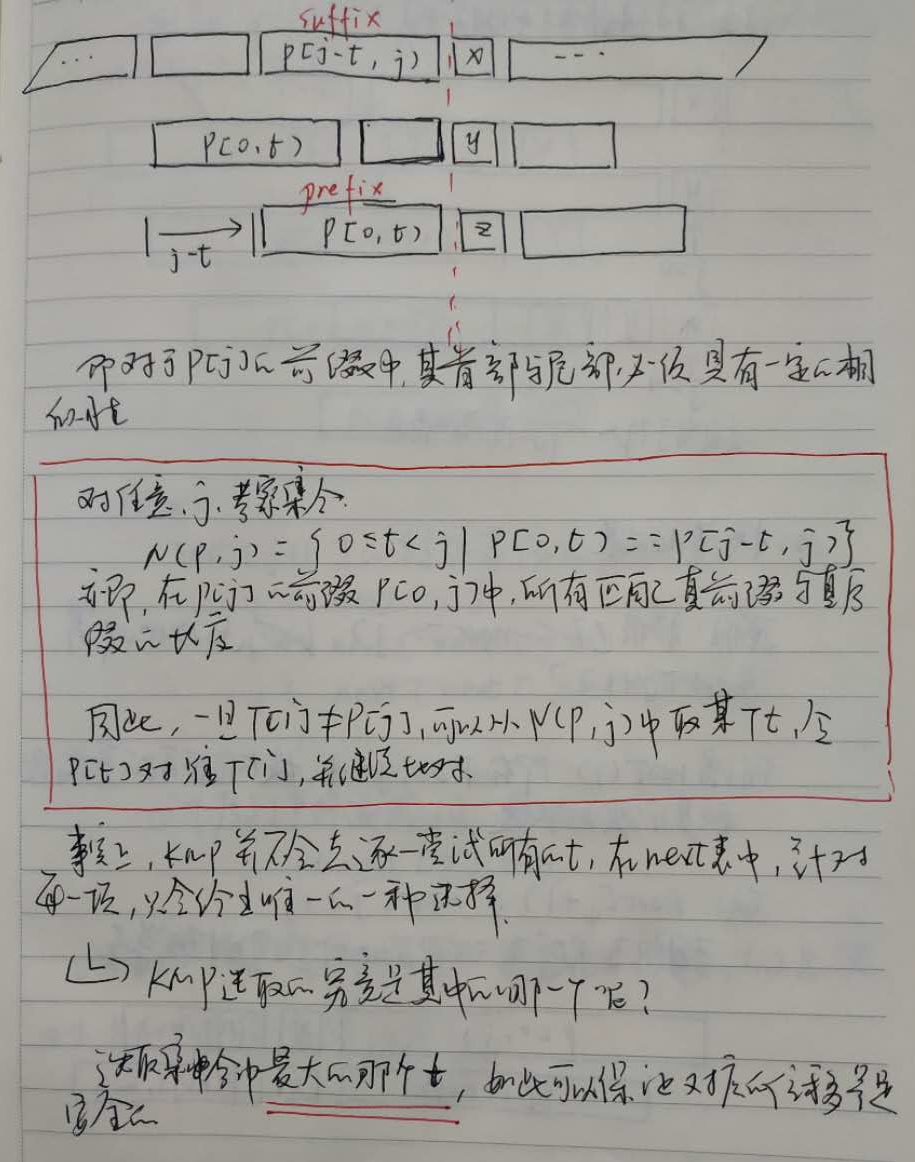 suffix
... P[j-t, j) X ---
P[0,t) y
prefix
P[0,t) z
j-t
即对于P[j]的前缀中,其首部与尾部,必须具有一定的相
似性
对任意j,考察集合
N(P,j) = { 0≤t<j | P[0,t) == P[j-t, j)}
亦即,在P[j]的前缀P[0,j)中,所有匹配真前缀与真后
缀的长度
因此,一旦T[i]≠P[j],可以从N(P,j)中取某个t,令
P[t]对准T[i],并继续比对.
事实上,KMP并不会去逐一尝试所有的t,在next表中,针对
每一项,只会给出唯一的一种选择.
KMP选取的究竟是其中的哪一个呢?
选取集合中最大的那个t,如此可以保证对应的位移是
安全的